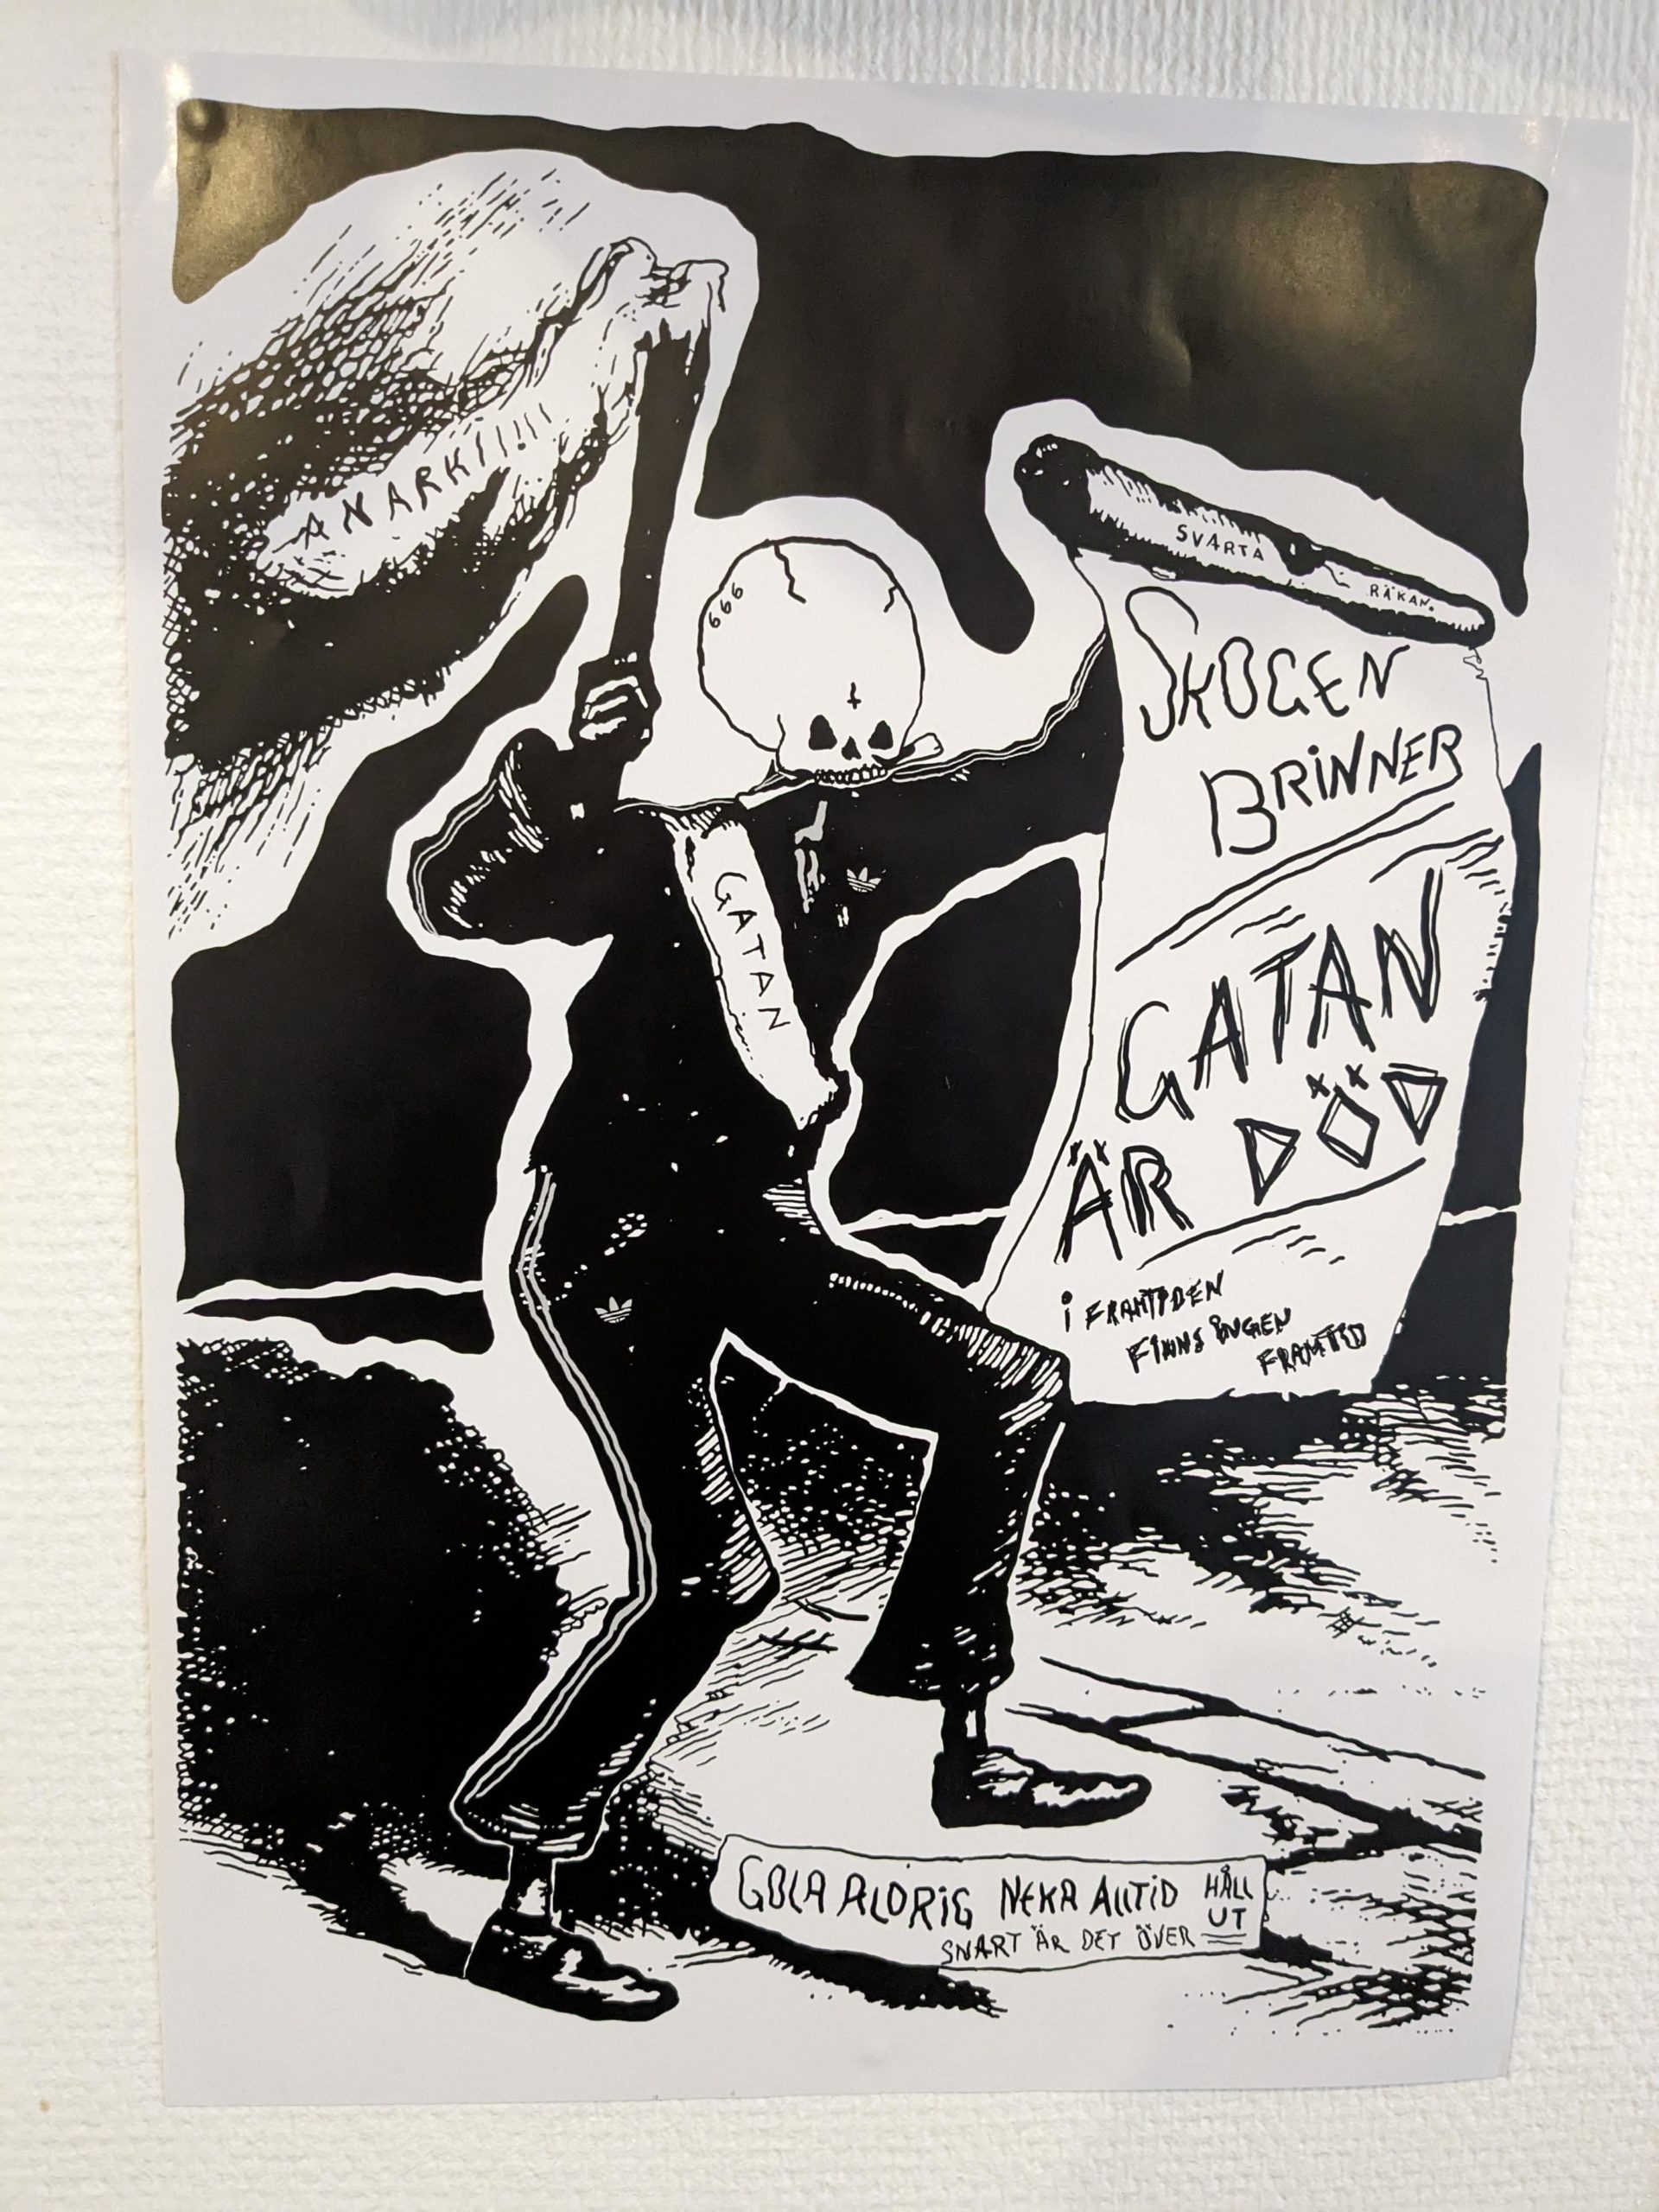 ANARKI!!!
SVARTA
RÄKAN.
666
SKOGEN
BRINNER
GATAN
GATAN
ÄR DÖD
i FRAMTIDEN
FINNS iNGEN
FRAMTID
GOLA ALDRiG NEKA AllTiD HÅLL
UT
SNART ÄR DET ÖVER